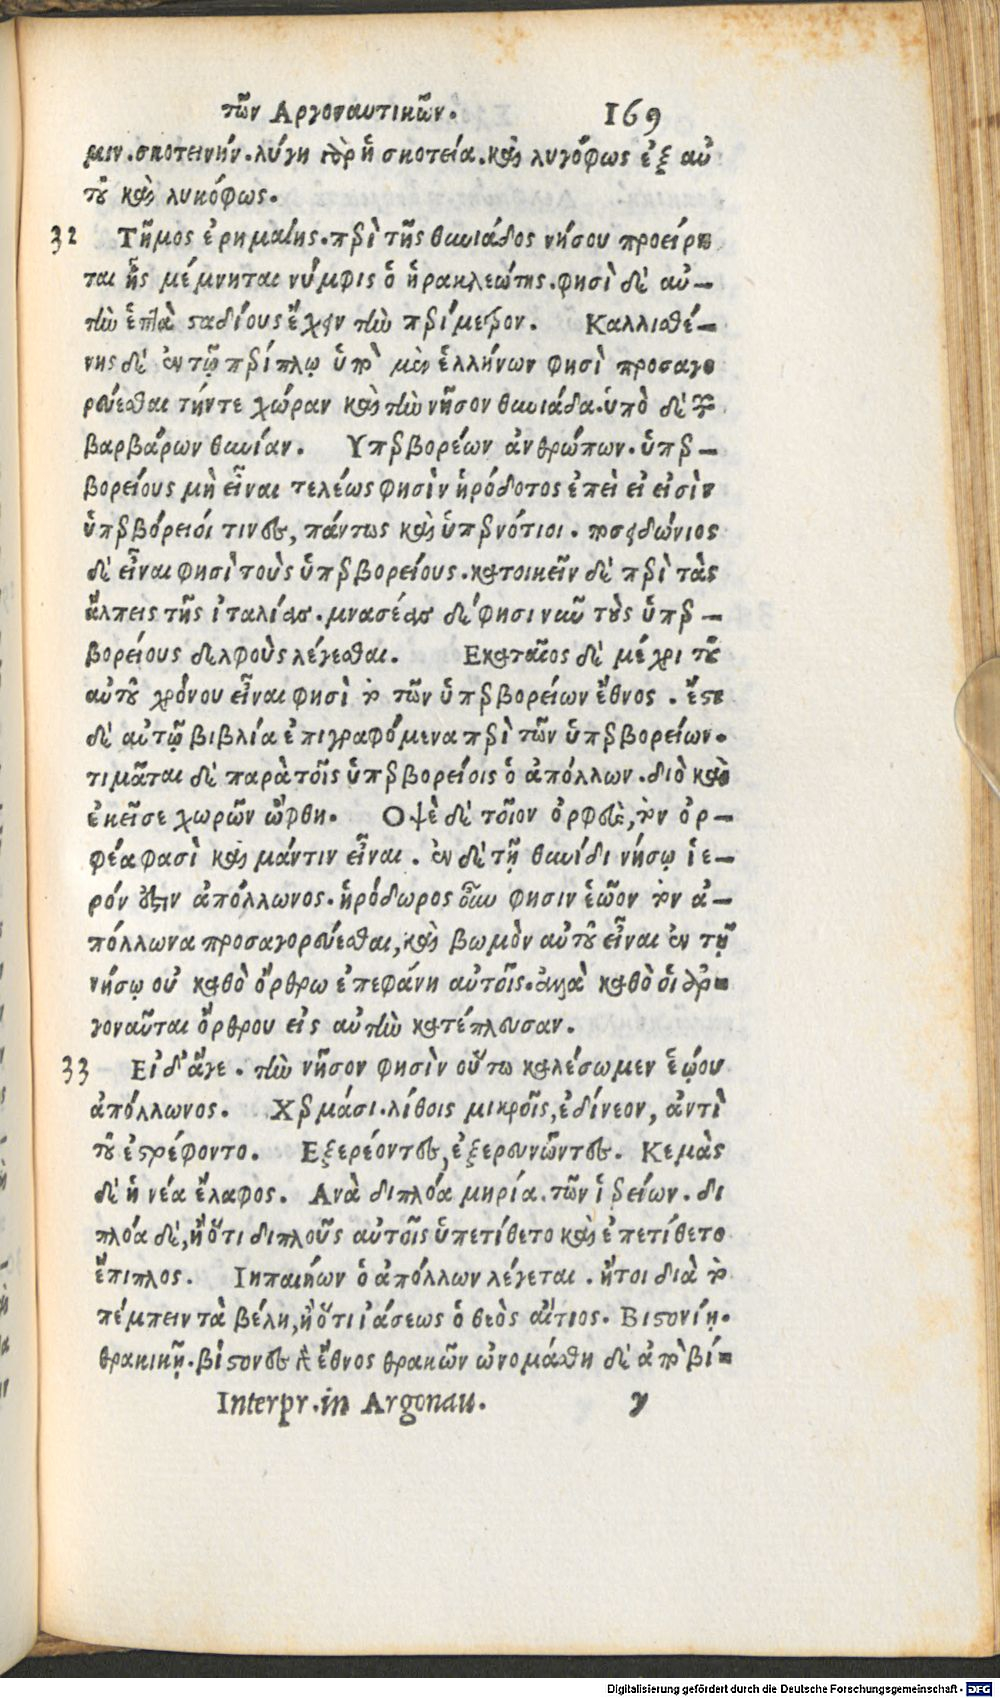 τῶν Αργοναυτικῶν. 169
μιν. σκοτεινήν. λύγη γὰρ ἡ σκοτεία. καὶ λυγόφως ἐξ αὐ
τοῦ καὶ λυκόφως.
32 Τῆμος ἐρημαίης. περὶ τῆς θυνιάδος νήσου προείρη
ται ἧς μέμνηται νύμφις ὁ ἡρακλεώτης. φησὶ δὲ αὐ-
τὴν ἑπτὰ σταδίους ἔχειν τὴν περίμετρον. Καλλισθέ-
νης δὲ ἐν τῷ περίπλῳ ὑπὸ μὲν ἑλλήνων φησὶ προσαγο
ρεύεσθαι τήντε χώραν καὶ τὴν νῆσον θυνιάδα. ὑπὸ δὲ τῶν
βαρβάρων θυνίαν. Υπερβορείων ἀνθρώπων. ὑπερ-
βορείους μὴ εἶναι τελέως φησὶν ἡρόδοτος ἐπεὶ εἰ εἰσὶν
ὑπερβόρειοί τινες, πάντως καὶ ὑπερνότιοι. ποσειδώνιος
δὲ εἶναι φησὶ τοὺς ὑπερβορείους. κατοικεῖν δὲ περὶ τὰς
ἄλπεις τῆς ἰταλίας. μνασέας δέ φησι νῦν τοὺς ὑπερ-
βορείους δελφοὺς λέγεσθαι. Εκαταῖος δὲ μέχρι τοῦ
αὐτοῦ χρόνου εἶναι φησὶ τὸ τῶν ὑπερβορείων ἔθνος. ἔστι
δὲ αὐτῷ βιβλία ἐπιγραφόμενα περὶ τῶν ὑπερβορείων.
τιμᾶται δὲ παρὰ τοῖς ὑπερβορείοις ὁ ἀπόλλων. διὸ καὶ
ἐκεῖσε χωρῶν ὤφθη. Οψὲ δὲ τοῖον ὀρφεὺς, τὸν ὀρ-
φέα φασὶ καὶ μάντιν εἶναι. ἐν δὲ τῇ θυνίδι νήσῳ ἱε-
ρόν ἐστιν ἀπόλλωνος. ἡρόδωρος οὖν φησιν ἑῶον τὸν ἀ-
πόλλωνα προσαγορεύεσθαι, καὶ βωμὸν αὐτοῦ εἶναι ἐν τῇ
νήσῳ οὐ καθὸ ὄρθρω ἐπεφάνη αὐτοῖς. ἀλλὰ καθὸ οἱ ἀρ-
γοναῦται ὄρθρου εἰς αὐτὴν κατέπλευσαν.
33 Εἰ δ' ἄγε. τὴν νῆσον φησὶν οὕτω καλέσωμεν ἑῴου
ἀπόλλωνος. Χερμάσι. λίθοις μικροῖς, ἐδίνεον, ἀντὶ
τοῦ ἐστρέφοντο. Εξερέοντες, ἐξερευνῶντες. Κεμὰς
δὲ ἡ νέα ἔλαφος. Ανὰ διπλόα μηρία. τῶν ἱερείων. δι
πλόα δὲ, ἢ ὅτι διπλοῦς αὐτοῖς ὑπετίθετο καὶ ἐπετίθετο
ἔπιπλος. Ιηπαιήων ὁ ἀπόλλων λέγεται. ἤτοι διὰ τὸ
πέμπειν τὰ βέλη, ἢ ὅτι ἰάσεως ὁ θεὸς αἴτιος. Βιστονίῃ.
θρακικῇ. βίστονες δὲ ἔθνος θρακῶν ὠνομάσθη δὲ ἀπὸ βί-
Interpr. in Argonau. y
Digitalisierung gefördert durch die Deutsche Forschungsgemeinschaft - DFG